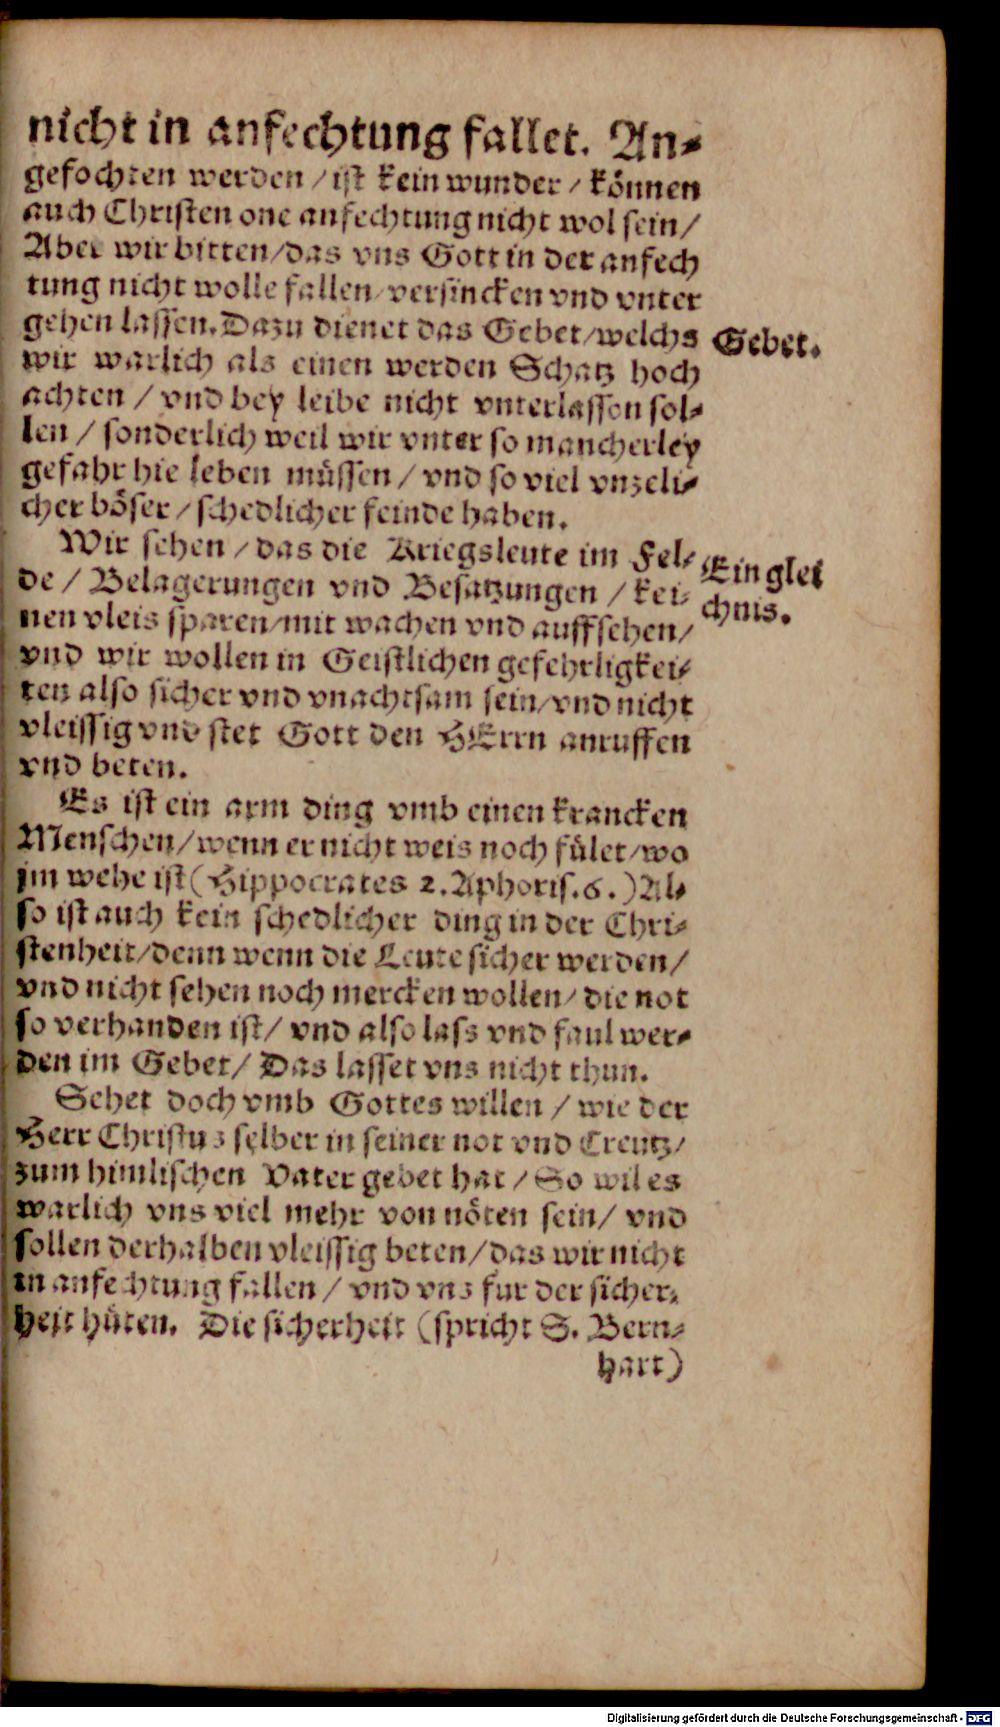 nicht in anfechtung fallet. An-
gefochten werden / ist kein wunder / können
auch Christen one anfechtung nicht wol sein /
Aber wir bitten / das vns Gott in der anfech
tung nicht wolle fallen / versincken vnd vnter
gehen lassen. Dazu dienet das Gebet / welchs
Gebet.
wir warlich als einen werden Schatz hoch
achten / vnd bey leibe nicht vnterlassen sol-
len / sonderlich weil wir vnter so mancherley
gefahr hie leben müssen / vnd so viel vnzeli-
cher böser / schedlicher feinde haben.
Wir sehen / das die Kriegsleute im Fel-
de / Belagerungen vnd Besatzungen / kei-
Ein glei
chnis.
nen vleis sparen / mit wachen vnd auffsehen /
vnd wir wollen in Geistlichen gefehrligkei-
ten also sicher vnd vnachtsam sein / vnd nicht
vleissig vnd stet Gott den HErrn anruffen
vnd beten.
Es ist ein arm ding vmb einen krancken
Menschen / wenn er nicht weis noch fület / wo
jm wehe ist (Hippocrates 2. Aphoris. 6.) Al-
so ist auch kein schedlicher ding in der Chri-
stenheit / denn wenn die Leute sicher werden /
vnd nicht sehen noch mercken wollen / die not
so verhanden ist / vnd also lass vnd faul wer-
den im Gebet / Das lasset vns nicht thun.
Sehet doch vmb Gottes willen / wie der
Herr Christus selber in seiner not vnd Creutz /
zum himlischen Vater gebet hat / So wil es
warlich vns viel mehr von nöten sein / vnd
sollen derhalben vleissig beten / das wir nicht
in anfechtung fallen / vnd vns fur der sicher-
heit hüten. Die sicherheit (spricht S. Bern-
hart)
Digitalisierung gefördert durch die Deutsche Forschungsgemeinschaft - DFG